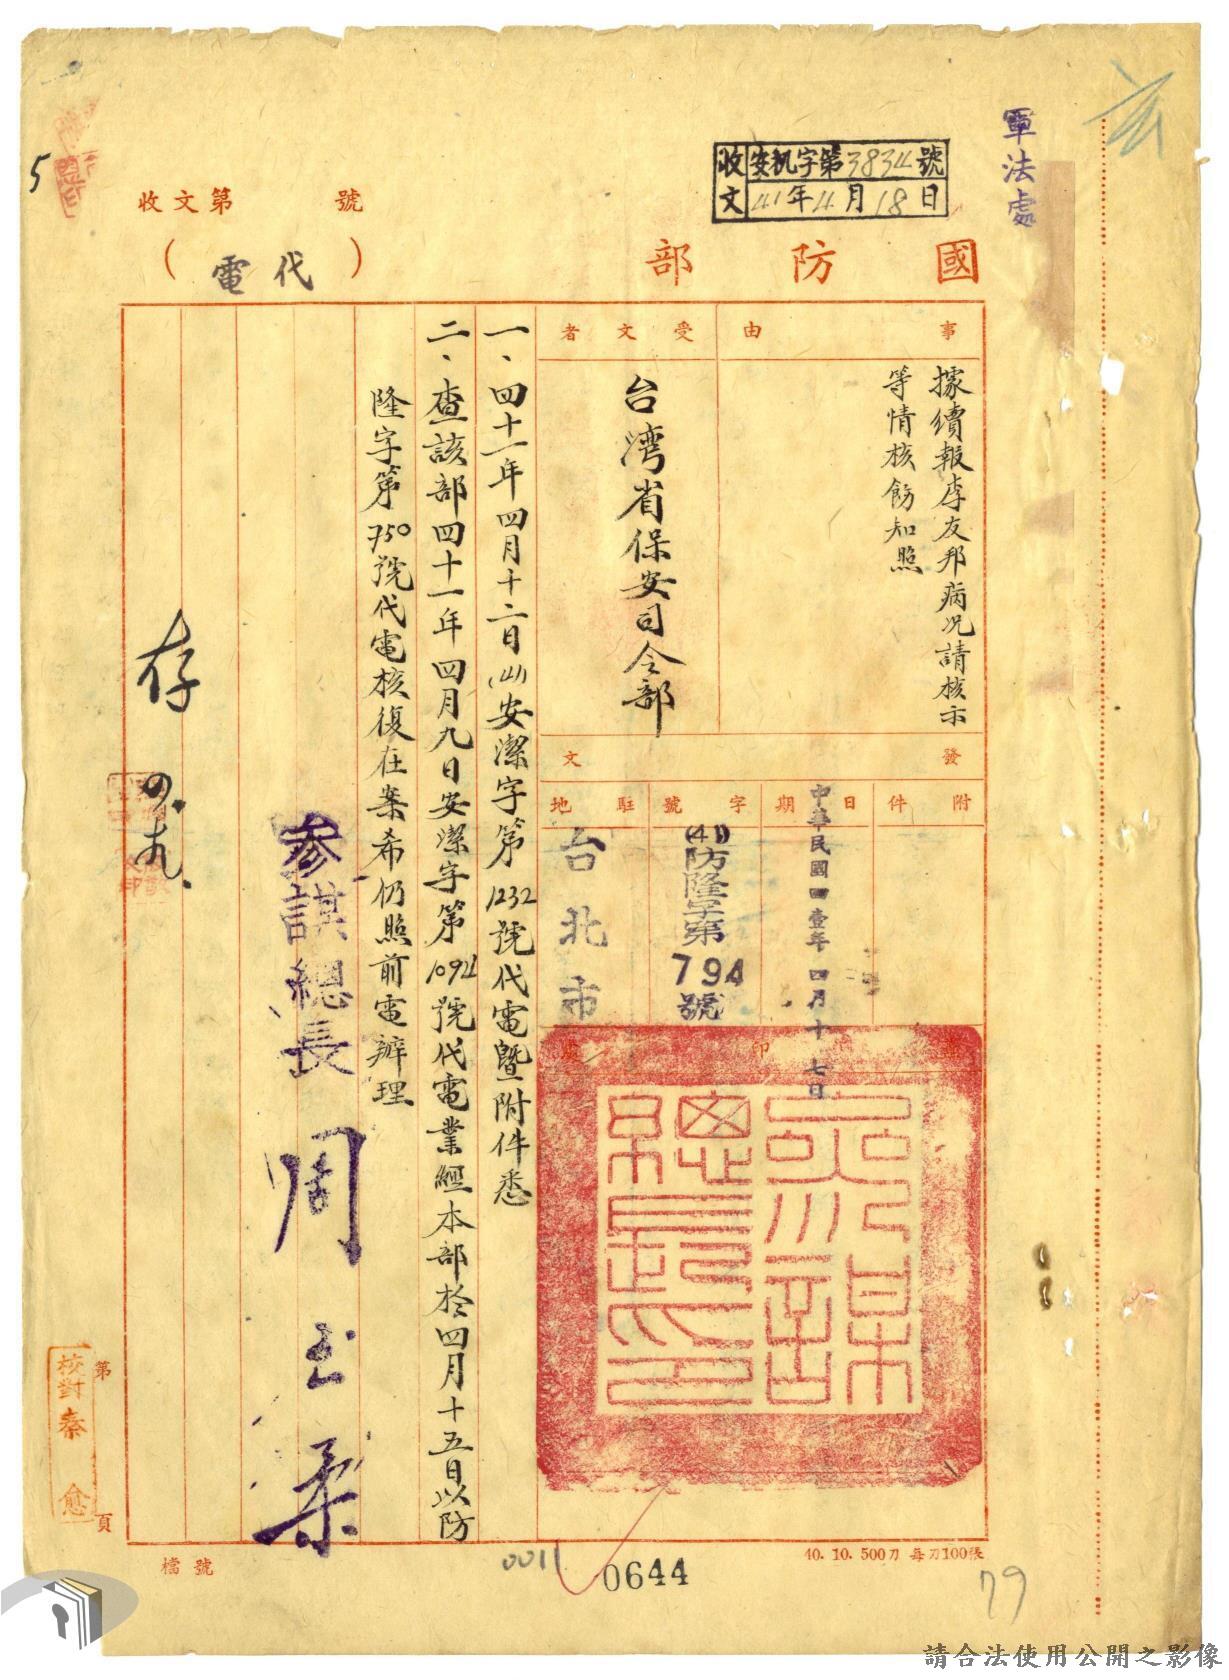 軍法處
收文 安机字第3834號
41年4月18日
國防部
(代電)
收文第 號
事由
據續報李友邦病况請核示
等情核飭知照
受文者
台湾省保安司令部
發文
附件
日期
中華民國四壹年四月十七日
字號
(41)防隆字第794號
駐地
台北市
參謀總長印
一、四十一年四月十二日(41)安潔字第1232號代電暨附件悉
二、查該部四十一年四月九日安潔字第1094號代電業經本部於四月十五日以防
隆字第750號代電核復在案希仍照前電辦理
參謀總長 周至柔
存
5
校對秦愈
第 頁
檔號
0011
0644
40.10.500刀 每刀100張
79
請合法使用公開之影像